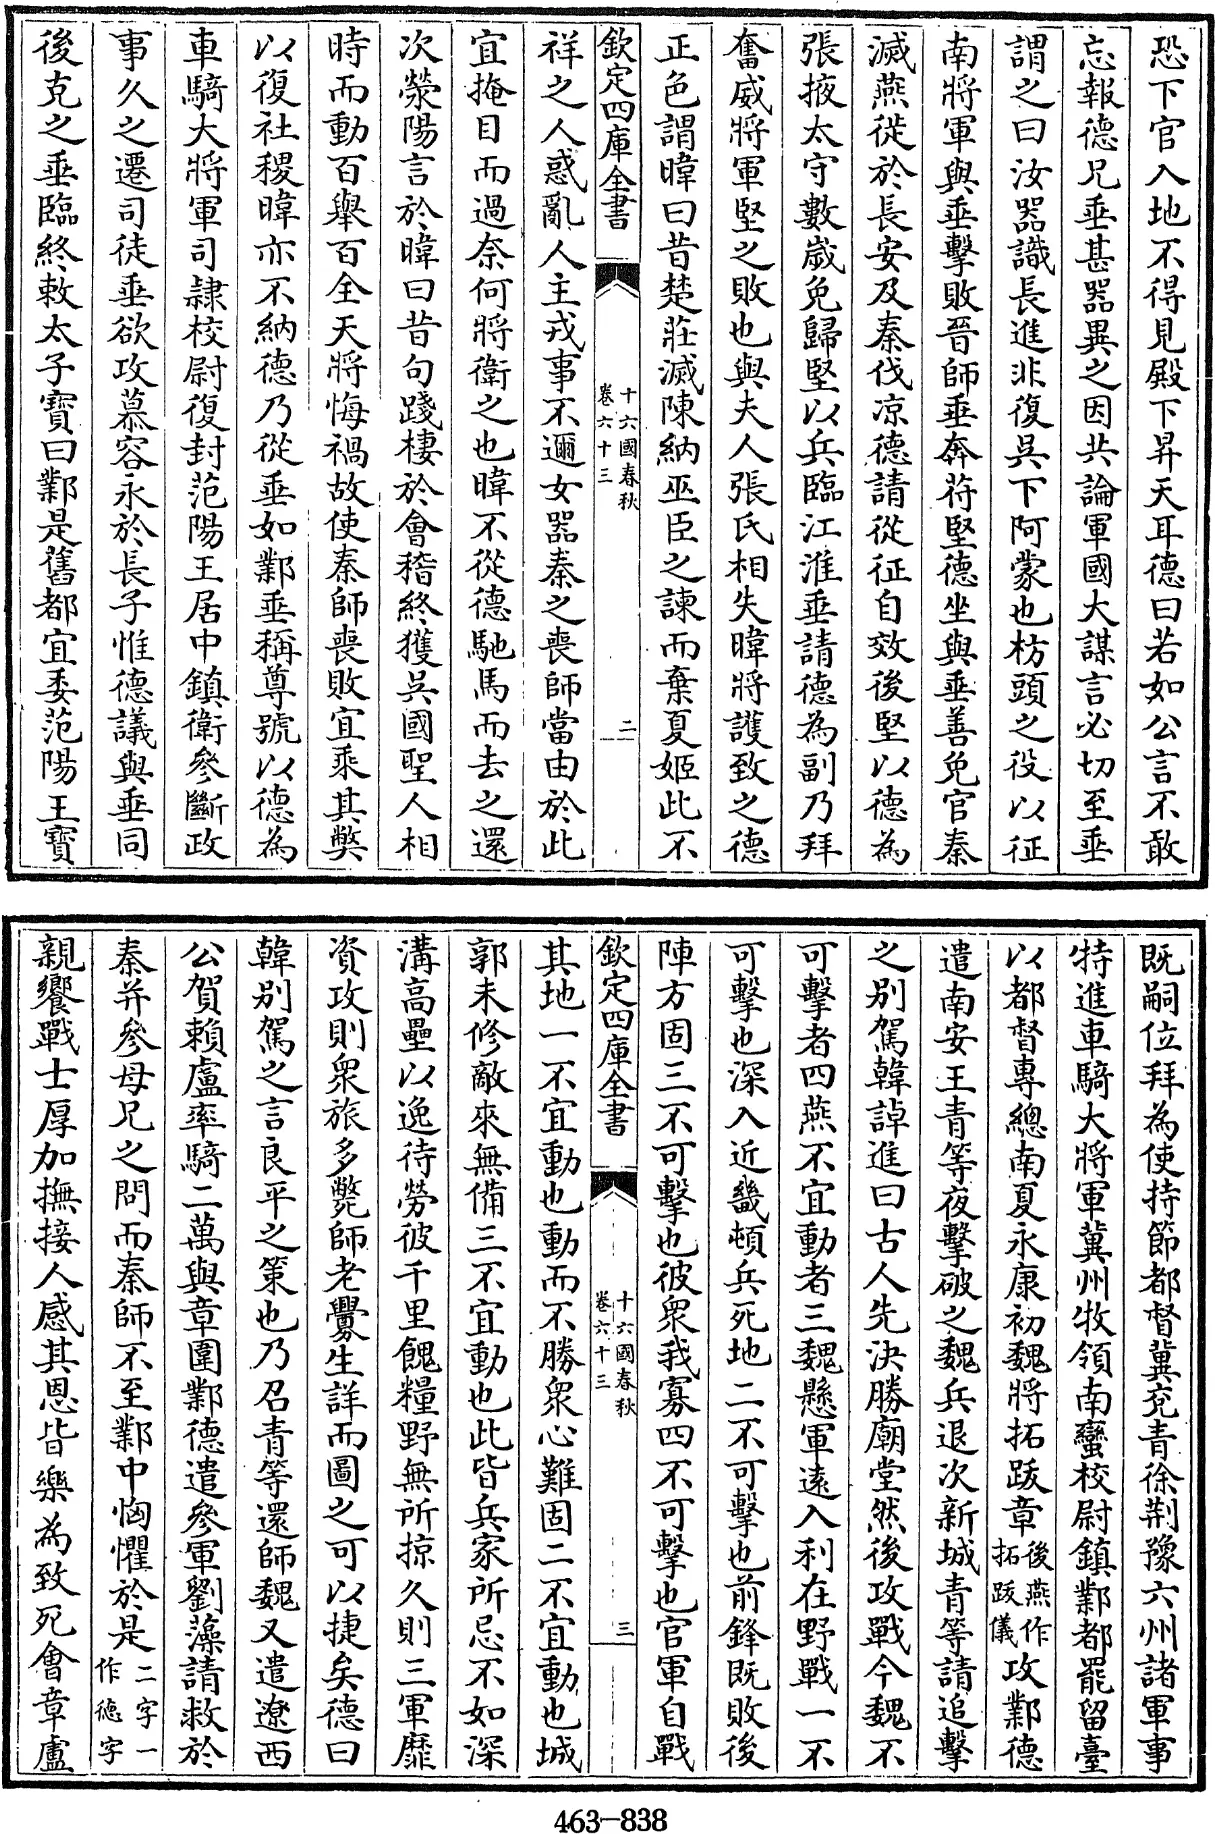 恐下官入地不得見殿下昇天耳德曰若如公言不敢
忘報德兄垂甚器異之因共論軍國大謀言必切至垂
謂之曰汝器識長進非復吳下阿蒙也枋頭之役以征
南將軍與垂擊敗晉師垂奔苻堅德坐與垂善免官秦
滅燕徙於長安及秦伐涼德請從征自效後堅以德為
張掖太守數歲免歸堅以兵臨江淮垂請德為副乃拜
奮威將軍堅之敗也與夫人張氏相失暐將護致之德
正色謂暐曰昔楚莊滅陳納巫臣之諫而棄夏姬此不
欽定四庫全書
十六國春秋
卷六十三
二
祥之人惑亂人主戎事不邇女器秦之喪師當由於此
宜掩目而過奈何將衛之也暐不從德馳馬而去之還
次滎陽言於暐曰昔句踐棲於會稽終獲吳國聖人相
時而動百舉百全天將悔禍故使秦師喪敗宜乘其弊
以復社稷暐亦不納德乃從垂如鄴垂稱尊號以德為
車騎大將軍司隸校尉復封范陽王居中鎮衛參斷政
事久之遷司徒垂欲攻慕容永於長子惟德議與垂同
後克之垂臨終敕太子寶曰鄴是舊都宜委范陽王寶
既嗣位拜為使持節都督冀兗青徐荊豫六州諸軍事
特進車騎大將軍冀州牧領南蠻校尉鎮鄴都罷留臺
以都督專總南夏永康初魏將拓跋章後燕作拓跋儀攻鄴德
遣南安王青等夜擊破之魏兵退次新城青等請追擊
之別駕韓𧨳進曰古人先決勝廟堂然後攻戰今魏不
可擊者四燕不宜動者三魏懸軍遠入利在野戰一不
可擊也深入近畿頓兵死地二不可擊也前鋒既敗後
陣方固三不可擊也彼眾我寡四不可擊也官軍自戰
欽定四庫全書
十六國春秋
卷六十三
三
其地一不宜動也動而不勝眾心難固二不宜動也城
郭未修敵來無備三不宜動也此皆兵家所忌不如深
溝高壘以逸待勞彼千里餽糧野無所掠久則三軍靡
資攻則眾旅多斃師老釁生詳而圖之可以捷矣德曰
韓別駕之言良平之策也乃召青等還師魏又遣遼西
公賀賴盧率騎二萬與章圍鄴德遣參軍劉藻請救於
秦并參母兄之問而秦師不至鄴中恟懼於是二字一作德字
親饗戰士厚加撫接人感其恩皆樂為致死會章盧
463-838